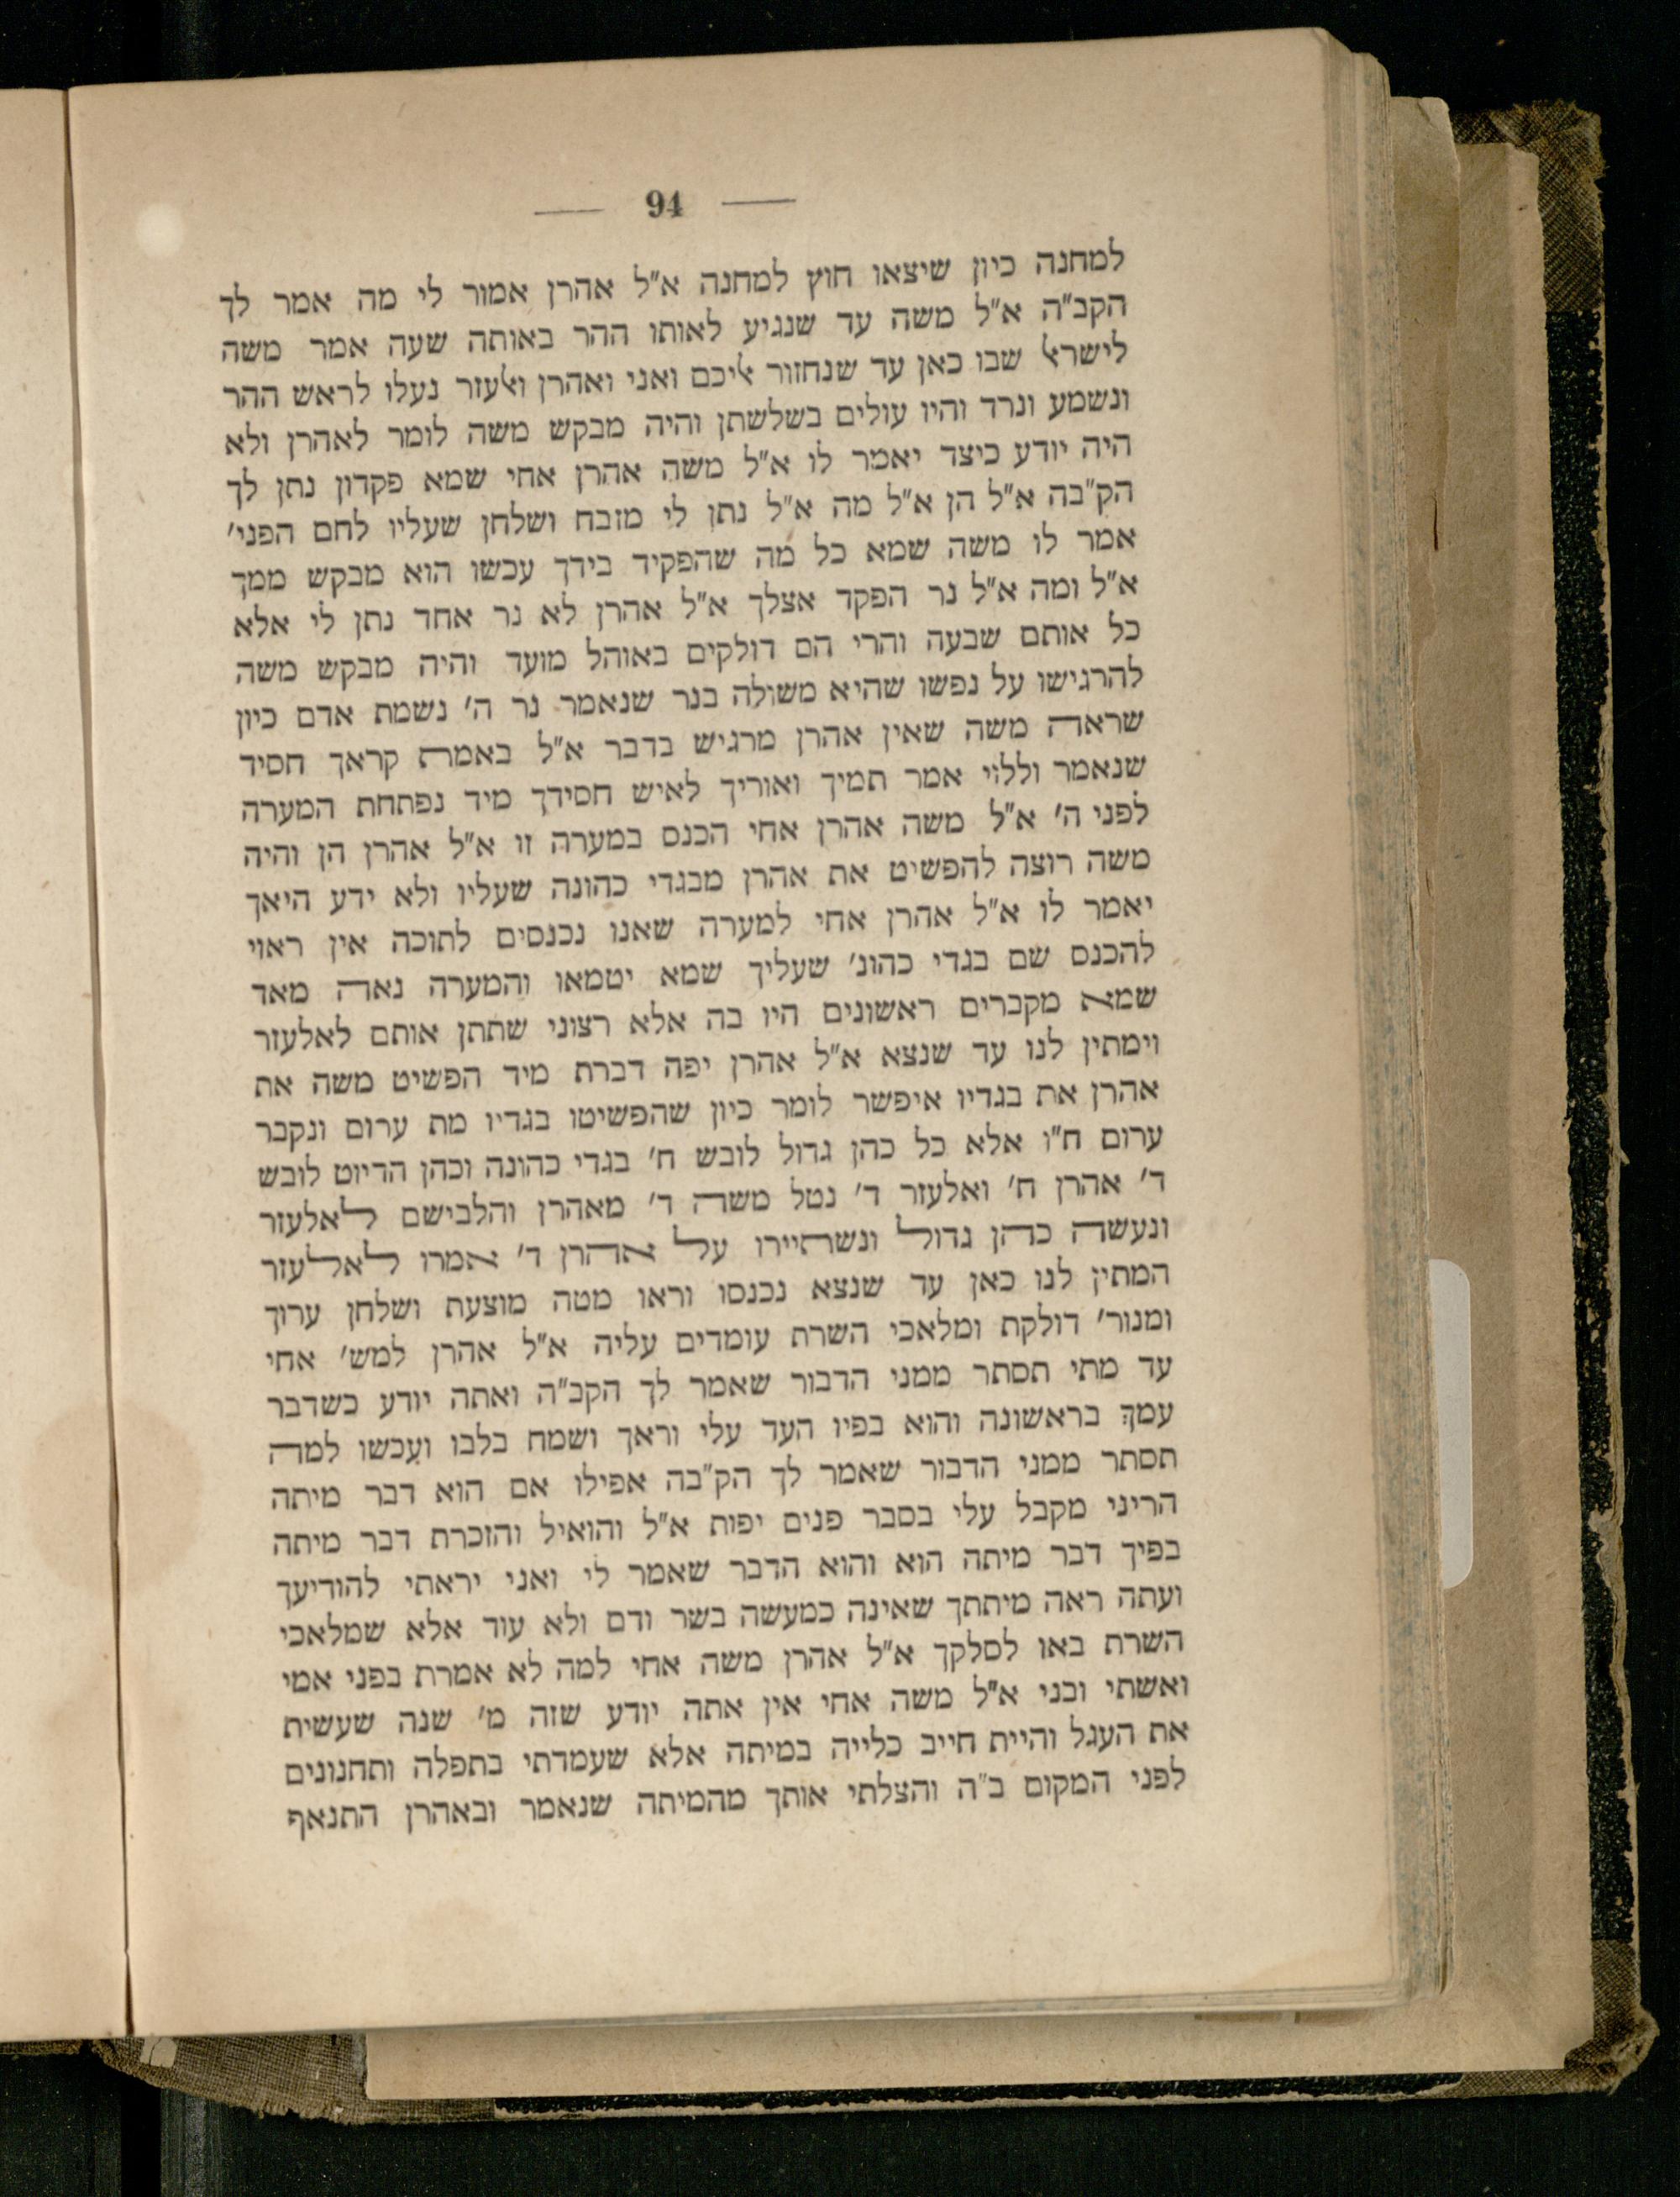 — 94 —
למחנה כיון שיצאו חוץ למחנה א"ל אהרן אמור לי מה אמר לך
הקב"ה א"ל משה עד שנגיע לאותו ההר באותה שעה אמר משה
לישראל שבו כאן עד שנחזור אליכם ואני ואהרן ואלעזר נעלו לראש ההר
ונשמע ונרד והיו עולים בשלשתן והיה מבקש משה לומר לאהרן ולא
היה יודע כיצד יאמר לו א"ל משה אהרן אחי שמא פקדון נתן לך
הק"בה א"ל הן א"ל מה א"ל נתן לי מזבח ושלחן שעליו לחם הפני'
אמר לו משה שמא כל מה שהפקיד בידך עכשו הוא מבקש ממך
א"ל ומה א"ל נר הפקד אצלך א"ל אהרן לא נר אחד נתן לי אלא
כל אותם שבעה והרי הם דולקים באוהל מועד והיה מבקש משה
להרגישו על נפשו שהיא משולה בנר שנאמר נר ה' נשמת אדם כיון
שראה משה שאין אהרן מרגיש בדבר א"ל באמת קראך חסיד
שנאמר וללוי אמר תמיך ואוריך לאיש חסידך מיד נפתחת המערה
לפני ה' א"ל משה אהרן אחי הכנס במערה זו א"ל אהרן הן והיה
משה רוצה להפשיט את אהרן מבגדי כהונה שעליו ולא ידע היאך
יאמר לו א"ל אהרן אחי למערה שאנו נכנסים לתוכה אין ראוי
להכנס שם בגדי כהונ' שעליך שמא יטמאו והמערה נאה מאד
שמא מקברים ראשונים היו בה אלא רצוני שתתן אותם לאלעזר
וימתין לנו עד שנצא א"ל אהרן יפה דברת מיד הפשיט משה את
אהרן את בגדיו איפשר לומר כיון שהפשיטו בגדיו מת ערום ונקבר
ערום ח"ו אלא כל כהן גדול לובש ח' בגדי כהונה וכהן הדיוט לובש
ד' אהרן ח' ואלעזר ד' נטל משה ד' מאהרן והלבישם לאלעזר
ונעשה כהן גדול ונשתיירו על אהרן ד' אמרו לאלעזר
המתין לנו כאן עד שנצא נכנסו וראו מטה מוצעת ושלחן ערוך
ומנור' דולקת ומלאכי השרת עומדים עליה א"ל אהרן למש' אחי
עד מתי תסתר ממני הדבור שאמר לך הקב"ה ואתה יודע כשדבר
עמך בראשונה והוא בפיו העד עלי וראך ושמח בלבו ועכשו למה
תסתר ממני הדבור שאמר לך הק"בה אפילו אם הוא דבר מיתה
הריני מקבל עלי בסבר פנים יפות א"ל והואיל והזכרת דבר מיתה
בפיך דבר מיתה הוא והוא הדבר שאמר לי ואני יראתי להודיעך
ועתה ראה מיתתך שאינה כמעשה בשר ודם ולא עוד אלא שמלאכי
השרת באו לסלקך א"ל אהרן משה אחי למה לא אמרת בפני אמי
ואשתי ובני א"ל משה אחי אין אתה יודע שזה מ' שנה שעשית
את העגל והיית חייב כלייה במיתה אלא שעמדתי בתפלה ותחנונים
לפני המקום ב"ה והצלתי אותך מהמיתה שנאמר ובאהרן התנאף